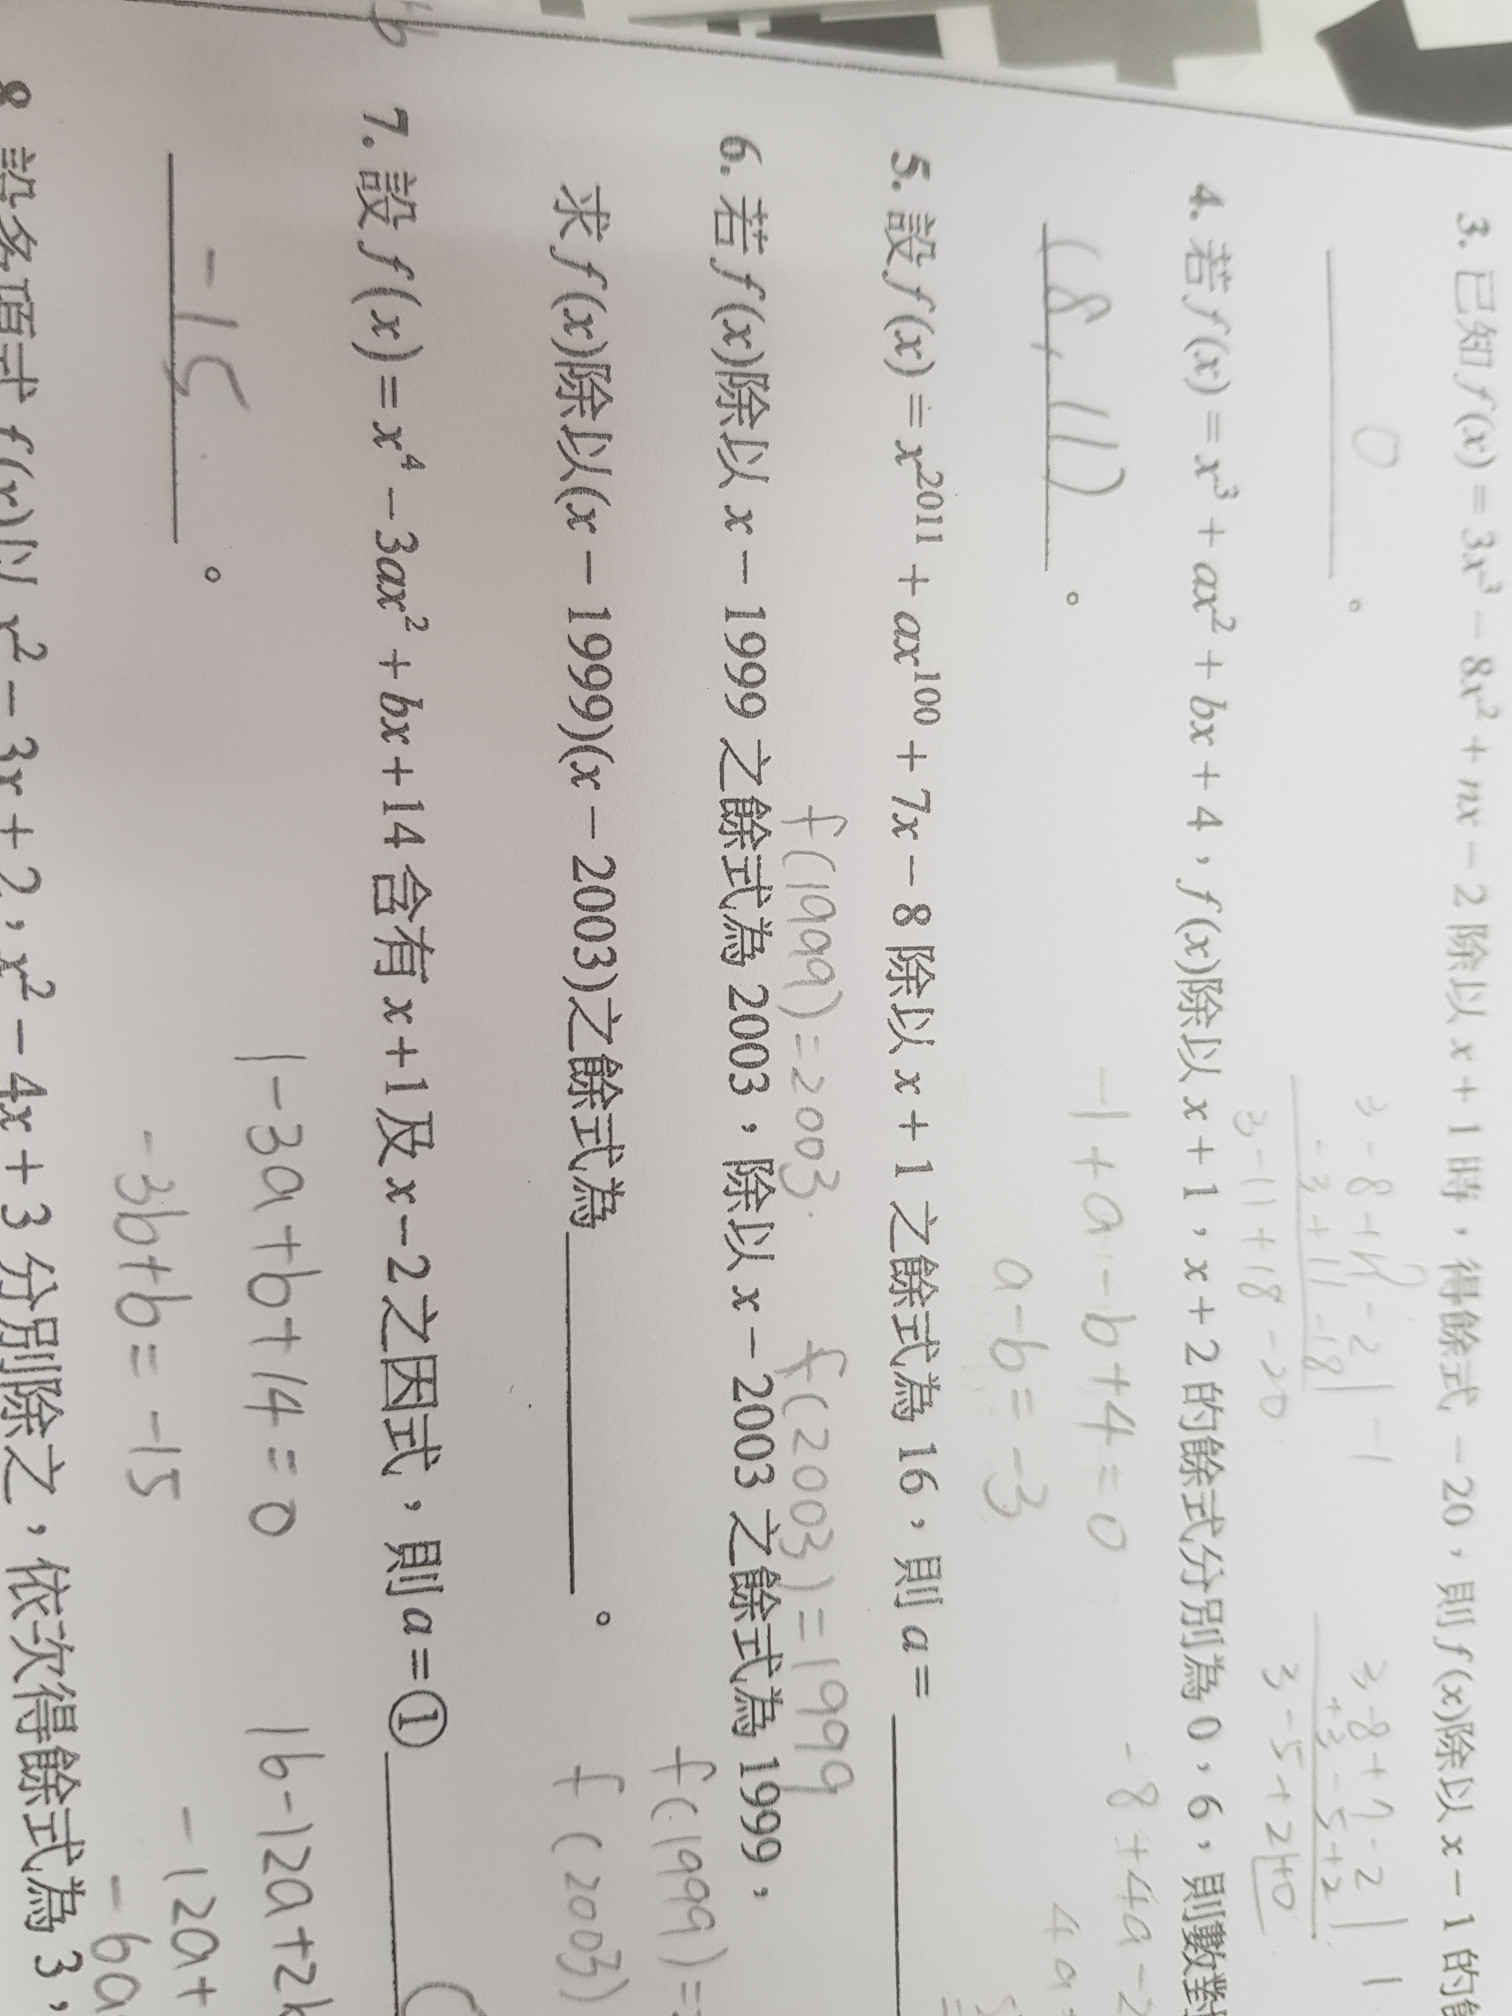 3. 已知 f(x) = 3x³ − 8x² + nx − 2 除以 x + 1 時，得餘式 −20，則 f(x)除以 x − 1 的
0 。
3 - 8 + n - 2 | -1
- 3 + 11 - 18
3 - 11 + 18 - 20
3 - 8 + 7 - 2 | 1
+3 - 5 + 2
3 - 5 + 2 + 0
4. 若 f(x) = x³ + ax² + bx + 4，f(x)除以 x + 1，x + 2 的餘式分別為 0，6，則數對
(8, 11) 。
-1 + a - b + 4 = 0
a - b = -3
-8 + 4a - 2
4a
5. 設 f(x) = x²⁰¹¹ + ax¹⁰⁰ + 7x − 8 除以 x + 1 之餘式為 16，則 a =
f(1999) = 2003. f(2003) = 1999
6. 若 f(x)除以 x − 1999 之餘式為 2003，除以 x − 2003 之餘式為 1999，
f(1999) =
求 f(x)除以(x − 1999)(x − 2003)之餘式為 。
f(2003)
7. 設 f(x) = x⁴ − 3ax² + bx + 14 含有 x + 1 及 x − 2 之因式，則 a = ①
1 - 3a + b + 14 = 0
16 - 12a + 2b
-15 。
-3b + b = -15
-12a +
-6a
8 設多項式 f(x)以 x² − 3x + 2，x² − 4x + 3 分別除之，依次得餘式為 3，